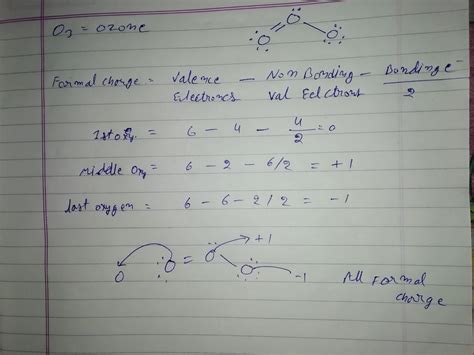 O₃ = ozone
O = O O
Formal charge = Valence Electrones — Non Bonding Val Eelctrons — Bonding e⁻/2
1st oxy = 6 — 4 — 4/2 = 0
Middle Oxy = 6 — 2 — 6/2 = +1
last oxygen = 6 — 6 — 2/2 = -1
O O = O O +1 -1
All Formal charge